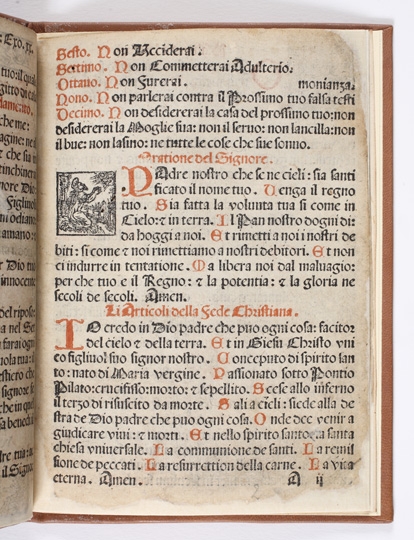 Exo. xx.
tuo: il qual
gitto di ca
damento.
che me:
magine: ne
e che su
tinchiner
nore Dio
Figliuo
ni odiano
amano:
Dio tuo
innocente
del riposo:
a nel Se
farai ogni
ola tua: il
estiero che
signore
che in que
sa bened
dre tua: a
il Signo
Sesto. Non Occiderai.
Settimo. Non Commetterai Adulterio.
Ottauo. Non Furerai. monianza.
Nono. Non parlerai contra il Prossimo tuo falsa testi
Decimo. Non desidererai la casa del prossimo tuo: non
desidererai la Moglie sua: non il seruo: non lancilla: non
il bue: non lasino: ne tutte le cose che sue sonno.
Oratione del Signore.
PAdre nostro che se ne cieli: sia santi
ficato il nome tuo. Uenga il regno
tuo. Sia fatta la volunta tua si come in
Cielo: & in terra. Il Pan nostro dogni di:
da hoggi a noi. Et rimetti a noi i nostri de
biti: si come & noi rimettiamo a nostri debitori. Et non
ci indurre in tentatione. Ma libera noi dal maluagio:
per che tuo e il Regno: & la potentia: & la gloria ne
secoli de secoli. Amen.
Li Articoli della Fede Christiana.
IO credo in Dio padre che puo ogni cosa: facitor
del cielo & della terra. Et in Giesu Christo vni
co figliuol suo signor nostro. Conceputo di spirito san
to: nato di Maria vergine. Passionato sotto Pontio
Pilato: crucifisso: morto: & sepellito. Scese allo inferno
il terzo di risuscito da morte. Sali a cieli: siede alla de
stra de Dio padre che puo ogni cosa. Onde dee venir a
giudicare viui: & morti. Et nello spirito santo: & a santa
chiesa vniuersale. La communione de santi. La remis
sione de peccati. La resurrettion della carne. La vita
eterna. Amen. A ij